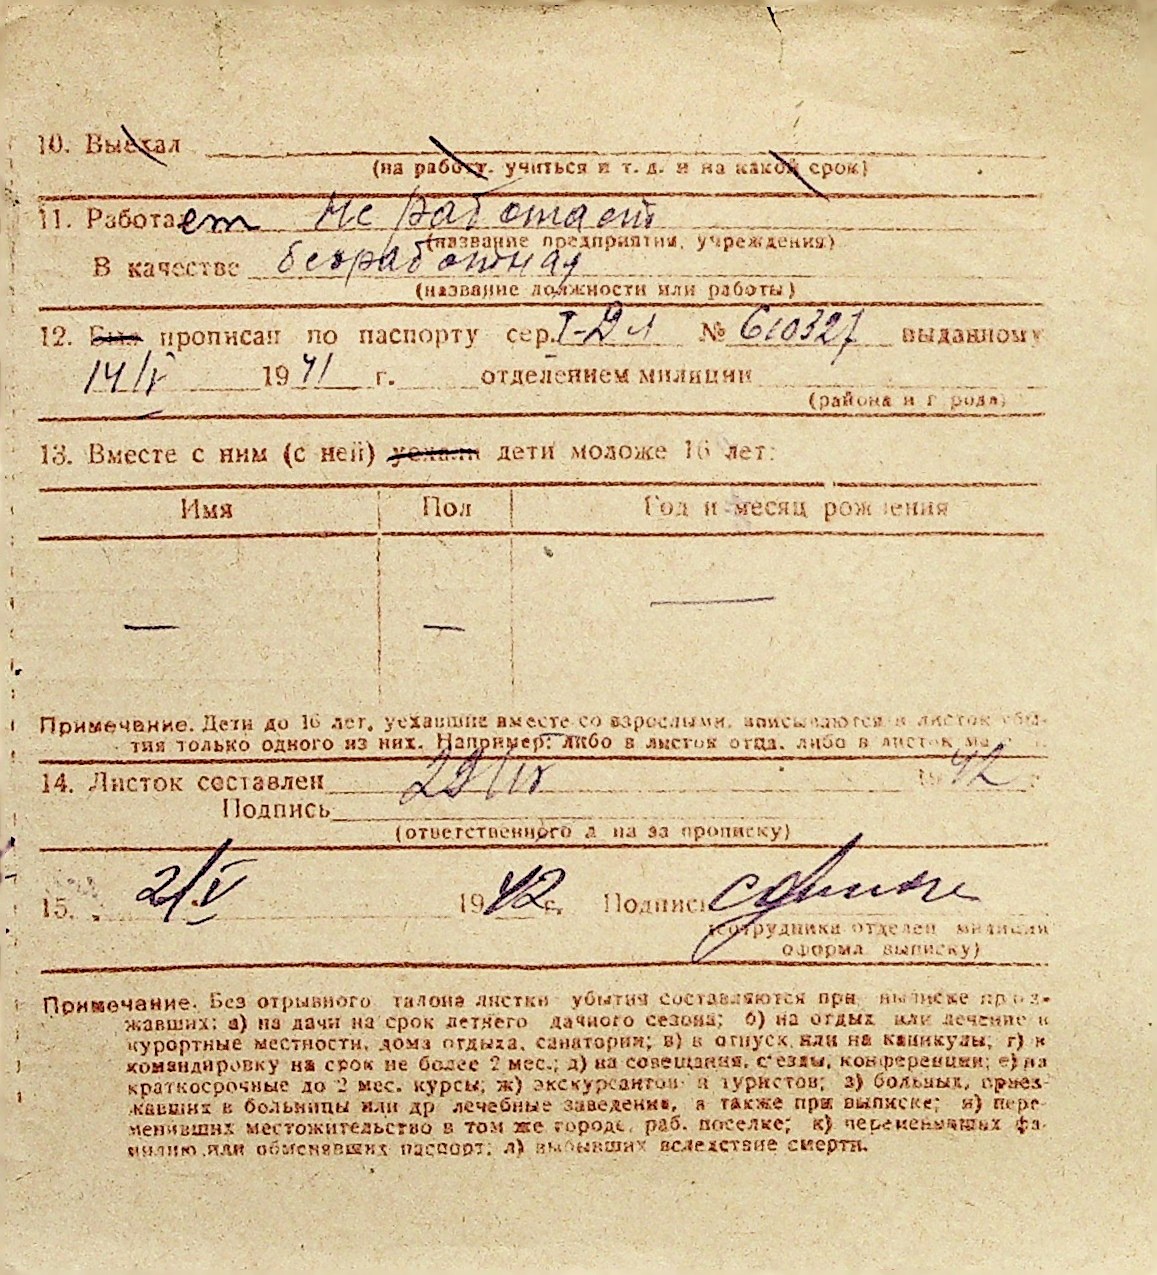 10. Выехал
(на работ. учиться и т. д. и на какой срок)
11. Работает Не работает
(название предприятия, учреждения)
В качестве безработная
(название должности или работы)
12. Был прописан по паспорту сер. № 610327 выданному
14/V 1941 г. отделением милиции
(района и города)
13. Вместе с ним (с ней) уехали дети моложе 16 лет:
Имя Пол Год и месяц рождения
— — —
Примечание. Дети до 16 лет, уехавшие вместе со взрослыми, вписываются в листок убы-
тия только одного из них. Например: либо в листок отца, либо в листок
14. Листок составлен 29/IV 1942 г.
Подпись
(ответственного за прописку)
15. 2/V 1942 г. Подпись
(сотрудника отделен милиции
оформл. выписку)
Примечание. Без отрывного талона листки убытия составляются при выписке проез-
жавших: а) на дачи на срок летнего дачного сезона; б) на отдых или лечение в
курортные местности, дома отдыха, санатории; в) в отпуск или на каникулы; г) в
командировку на срок не более 2 мес.; д) на совещания, съезды, конференции; е) на
краткосрочные до 2 мес. курсы; ж) экскурсантов и туристов; з) больных, приез-
жавших в больницы или др лечебные заведения, а также при выписке; и) пере-
менивших местожительство в том же городе, раб. поселке; к) переменивших фа-
милию или обменявших паспорт; л) выбывших вследствие смерти.